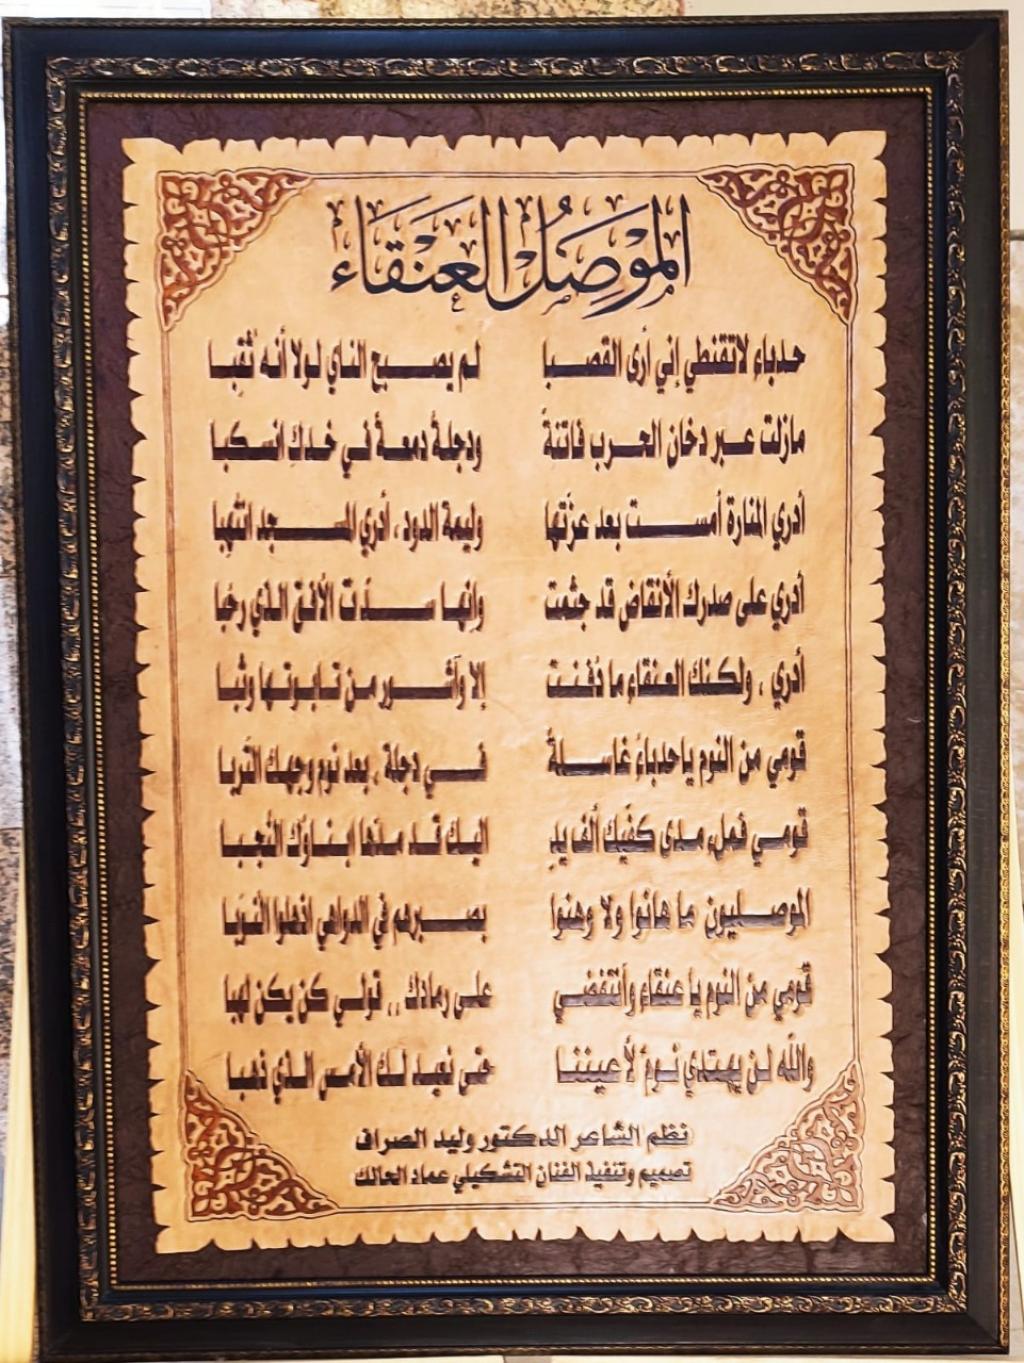 الموصل العنقاء
حدباء لاتقنطي إني أرى القصبا لم يصبح الناي لولا أنه ثُقِبا
مازلت عبر دخان الحرب فاتنةً ودجلةٌ دمعةٌ في خدكِ انسكبا
أدري المنارة أمست بعد عزّتها وليمة الدود ، أدري المسجد انتُهِبا
أدري على صدرك الأنقاض قد جثمت وإنها سدّت الأفق الذي رحُبا
أدري ، ولكنك العنقاء ما دُفنت إلا وآشور من تابوتها وثبا
قومي من النوم ياحدباءُ غاسلةً في دجلة ، بعد نوم وجهك التربا
قومي فملء مدى كفّيك ألف يدٍ اليك قد مدّها ابناؤك النُجبا
الموصليون ما هانوا ولا وهنوا بصبرهم في الدواهي اذهلوا النُوَبا
قومي من النوم يا عنقاء وأنتفضي على رمادك ,, قولي كن يكن لهبا
والله لن يهتدي نومٌ لأعيننا حتى نعيد لك الأمس الذي ذهبا
نظم الشاعر الدكتور وليد الصراف
تصميم وتنفيذ الفنان التشكيلي عماد الحالك